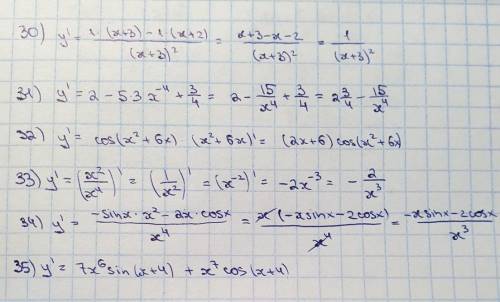 30) y' = (1·(x+3) - 1·(x+2))/(x+3)² = (x+3-x-2)/(x+3)² = 1/(x+3)²
31) y' = 2 - 5·3 x⁻⁴ + 3/4 = 2 - 15/x⁴ + 3/4 = 2 3/4 - 15/x⁴
32) y' = cos(x²+6x) (x²+6x)' = (2x+6) cos(x²+6x)
33) y' = (x²/x⁴)' = (1/x²)' = (x⁻²)' = -2x⁻³ = - 2/x³
34) y' = (-sinx·x² - 2x·cosx)/x⁴ = x(-xsinx - 2cosx)/x⁴ = (-xsinx - 2cosx)/x³
35) y' = 7x⁶ sin(x+4) + x⁷ cos(x+4)